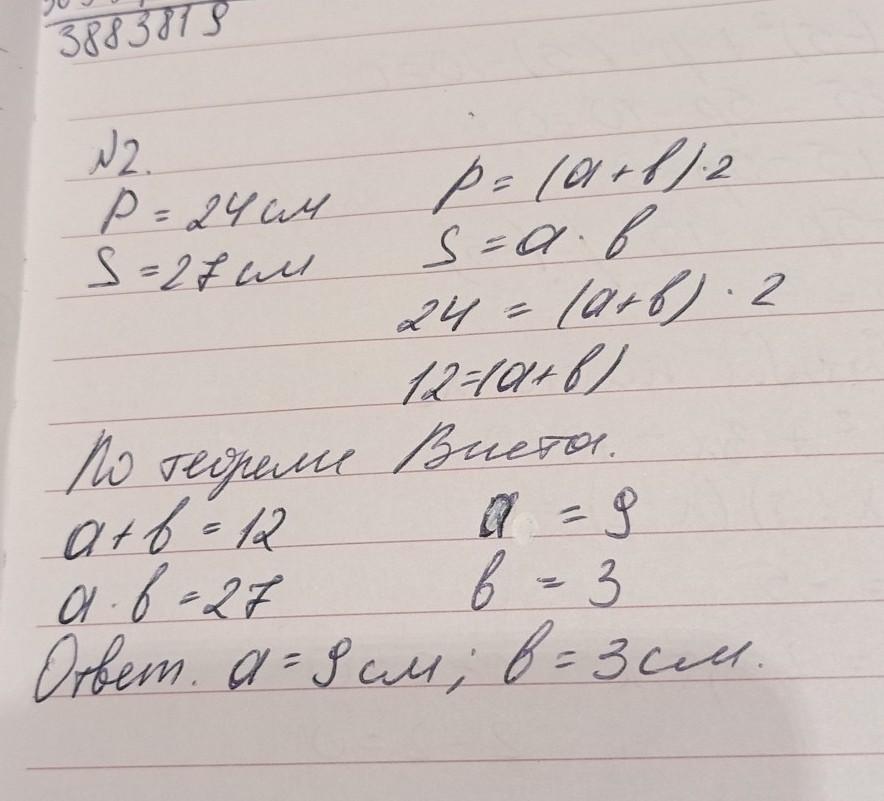 3883819
N2.
P = 24 см
S = 27 см
P = (a + b) · 2
S = a · b
24 = (a + b) · 2
12 = (a + b)
По теореме Виета.
a + b = 12
a · b = 27
a = 9
b = 3
Ответ. a = 9 см; b = 3 см.